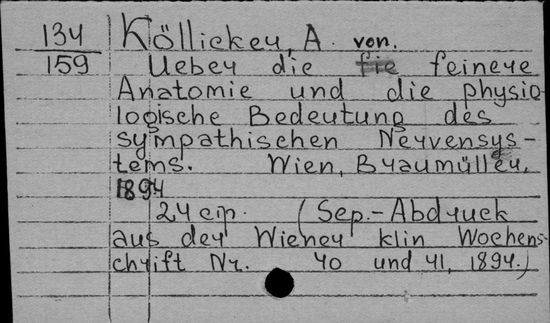 134
159
Kölliker, A. von.
Ueber die fie feinere
Anatomie und die physio-
logische Bedeutung des
sympathischen Nervensys-
tems. Wien, Braumüller,
1894
24 cm. (Sep.-Abdruck
aus der Wiener klin Wochens-
chrift Nr. 40 und 41, 1894.)